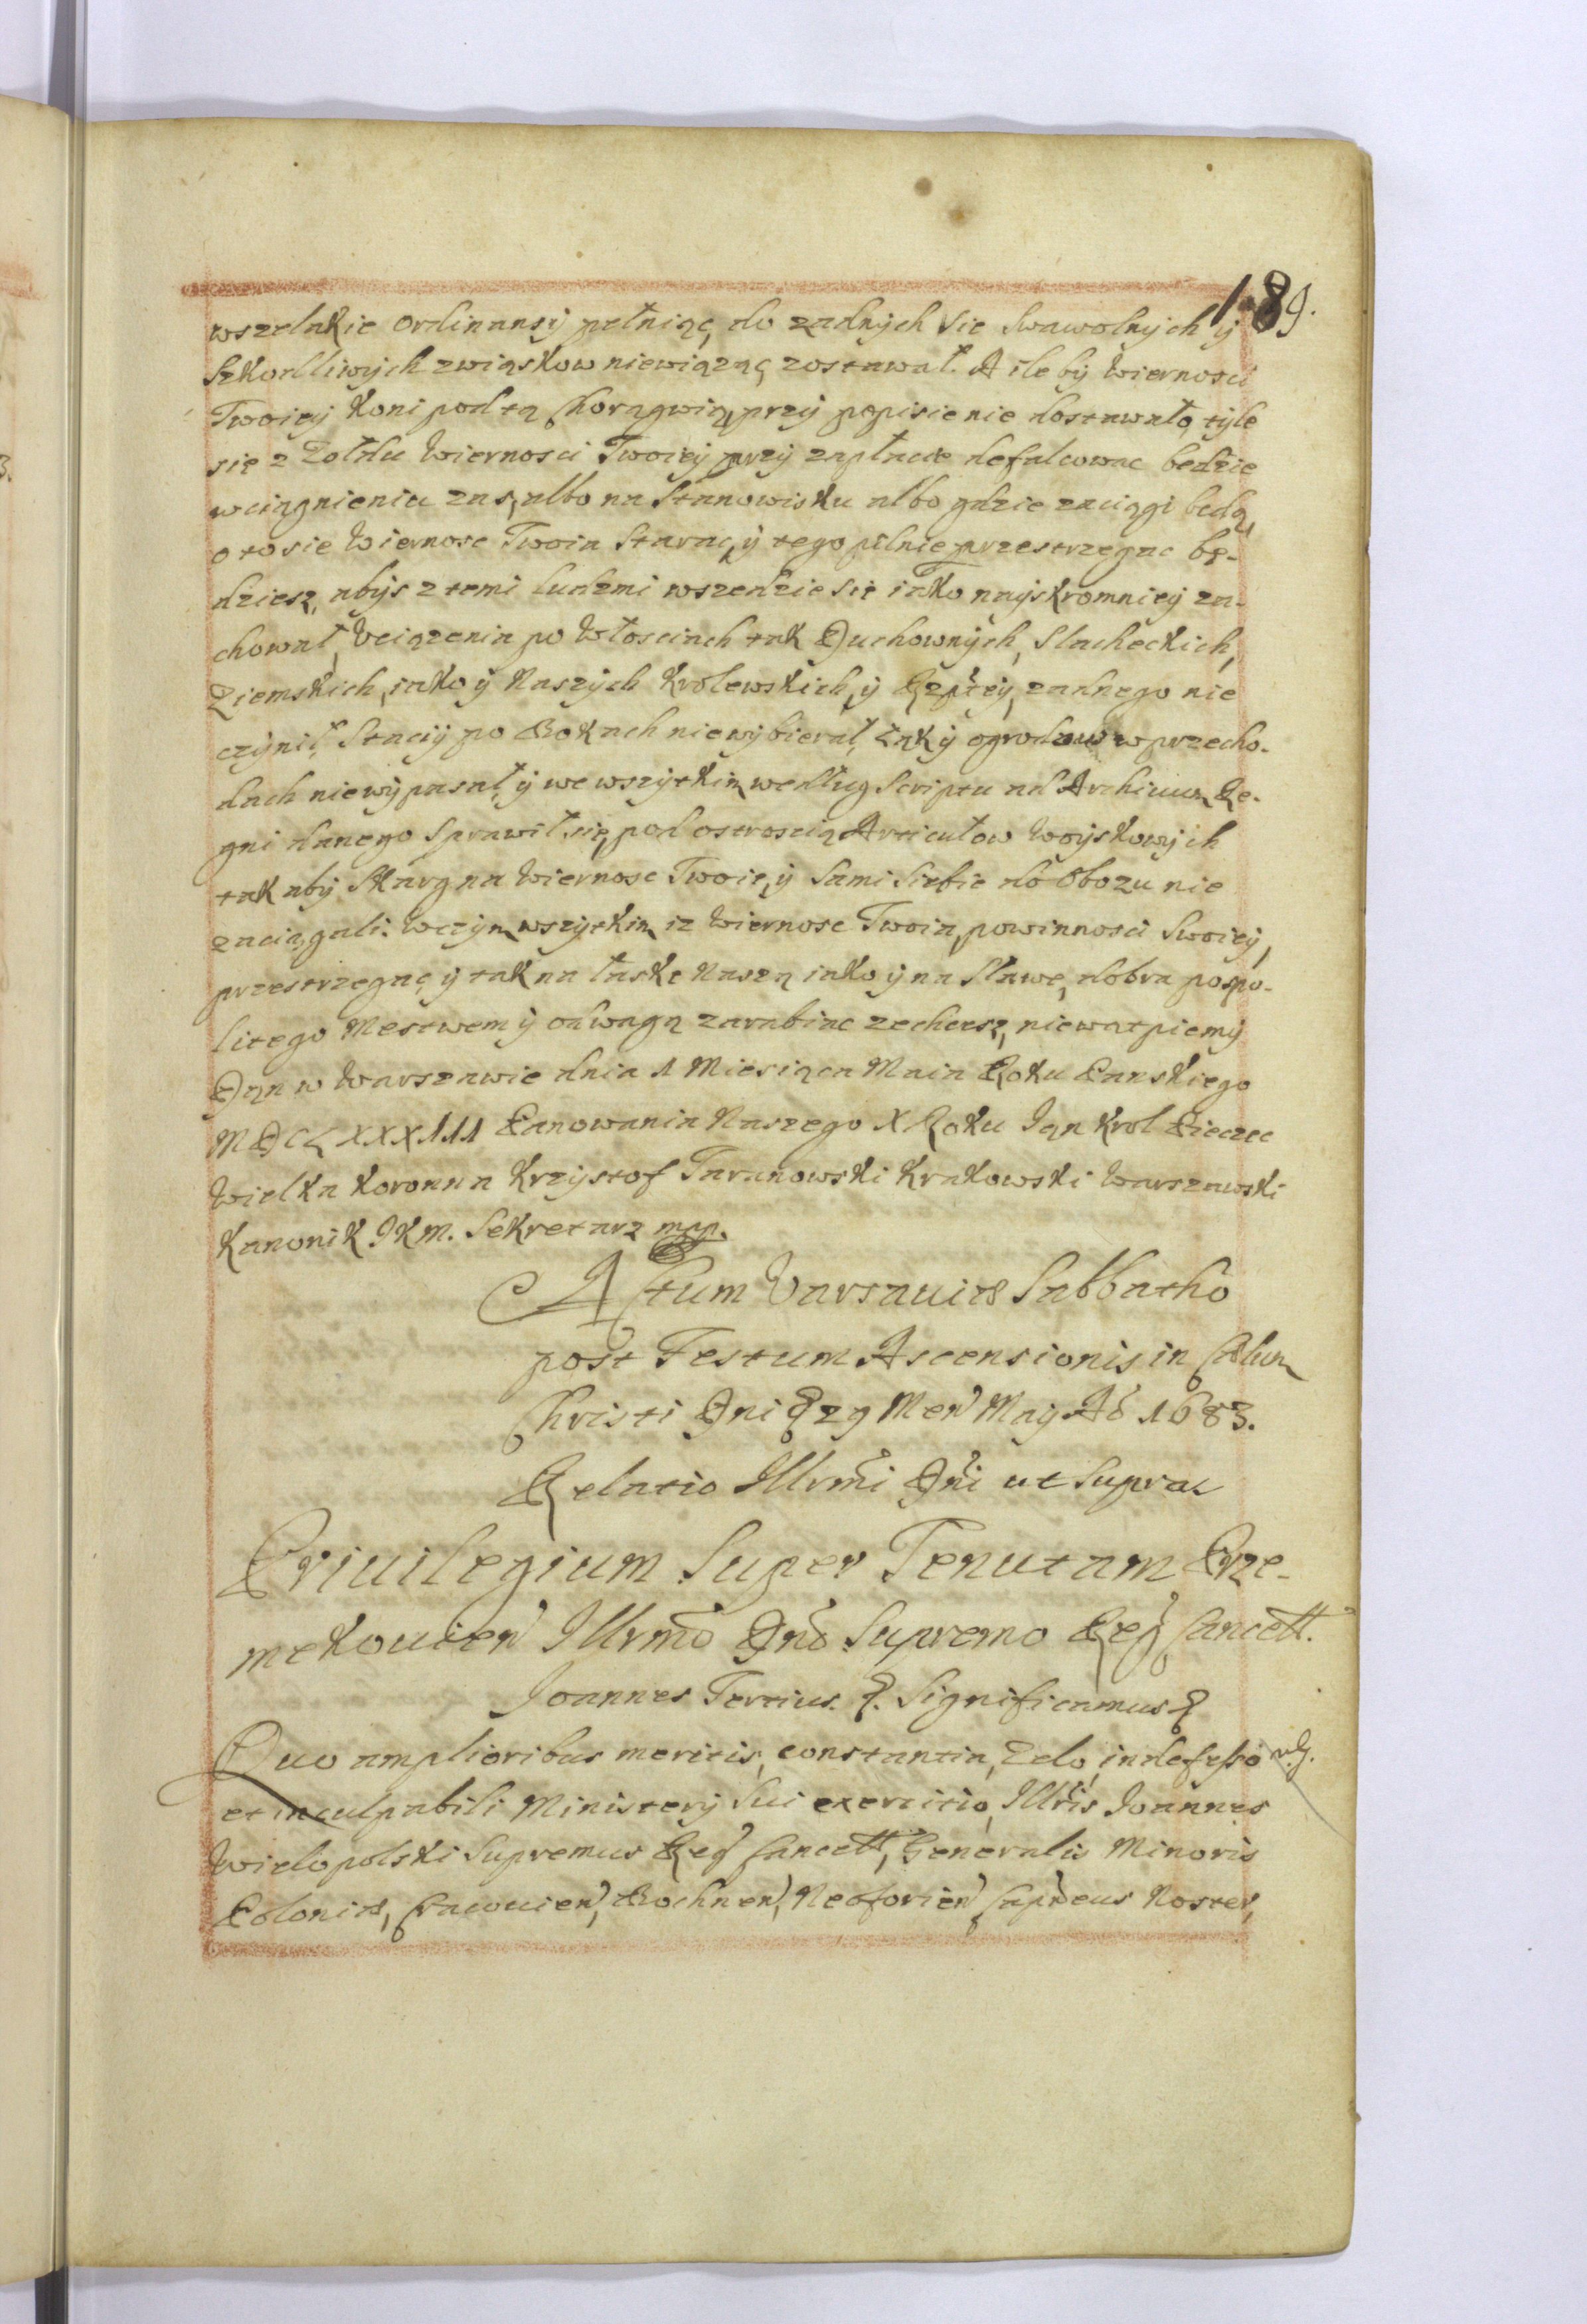 189.
wszelakie ordinansy pełniąc, do zadnych sie swawolnych y
szkodliwych zwiąskow niewiążąc zostawał. A ile by Wiernosci
Twoiey koni pod tą Chorągwią, przy popisie nie dostawało, tyle
się z Zołdu Wiernosci Twoiey przy zapłacie defalcowac będzie
wciągnieniu zas, albo na Stanowisku albo gdzie zaciągi będą,
o to sie Wiernosc Twoia starac, y tego pilnie przestrzegac bę-
dziesz, abys z temi ludzmi wszedzie się iako nayskromniey za-
chował, Uciązenia po Włosciach tak Duchownych, Slacheckich,
Ziemskich, iako y Naszych Krolewskich, y Rzptey, zadnego nie
czynił, Stacij po Bokach niewybierał, Łąk y ogrodow w przecho-
dach niewypasał, y we wszytkim według Scriptu ad Archivum Re-
gni danego sprawił się, pod ostroscią Articułow Woyskowych
tak aby Skarg na Wiernosc Twoię, y sami siebie do Obozu nie
zaciągali. Wczym wszytkim iz Wiernosc Twoia, powinnosci Swoiey,
przestrzegac, y tak na łaskę Naszą iako y na Sławę, dobra pospo-
litego Mestwem y odwagą zarabiac zechcesz, niewatpiemy
Dan w Warszawie dnia 1 Miesiąca Maia Roku Panskiego
MDCLXXXIII Panowania Naszego X Roku Jan Krol Pieczec
Wielka Koronna Krzysztof Taranowski Krakowski Warszawski
Kanonik JKM. Sekretarz mpp.
Actum Varsaviæ Sabbatho
post Festum Ascensionis in Cælum
Christi Dni 29 Men May Ao 1683.
Relatio Illrmi Dni ut Supra
Privilegium Super Tenutam Prze-
mekovien Illrmo Dno Supremo Reg Cancell.
Joannes Tertius. &. Significamus &
Quo amplioribus meritis, constantia, Zelo, indefesso
et inculpabili Ministerij Sui exercitio, Illris Joannes
Wielopolski Supremus Reg Cancell, Generalis Minoris
Poloniæ, Cracovien, Bochnen, Neoforien Capneus Noster,